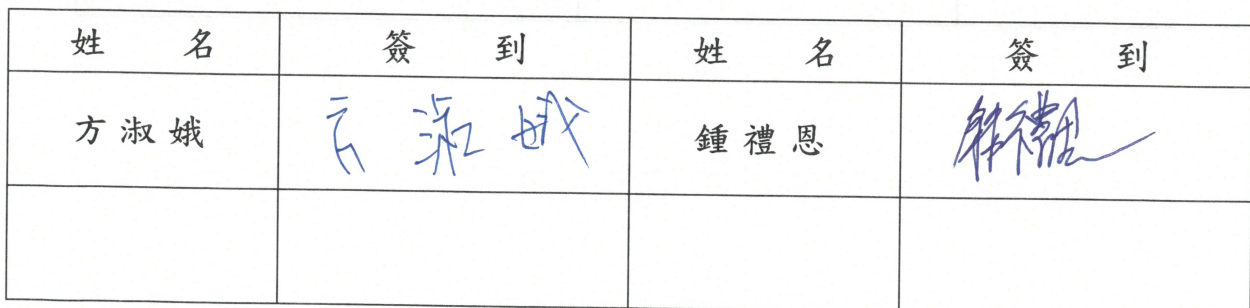 姓 名 簽 到 姓 名 簽 到
方淑娥 方淑娥 鍾禮恩 鍾禮恩